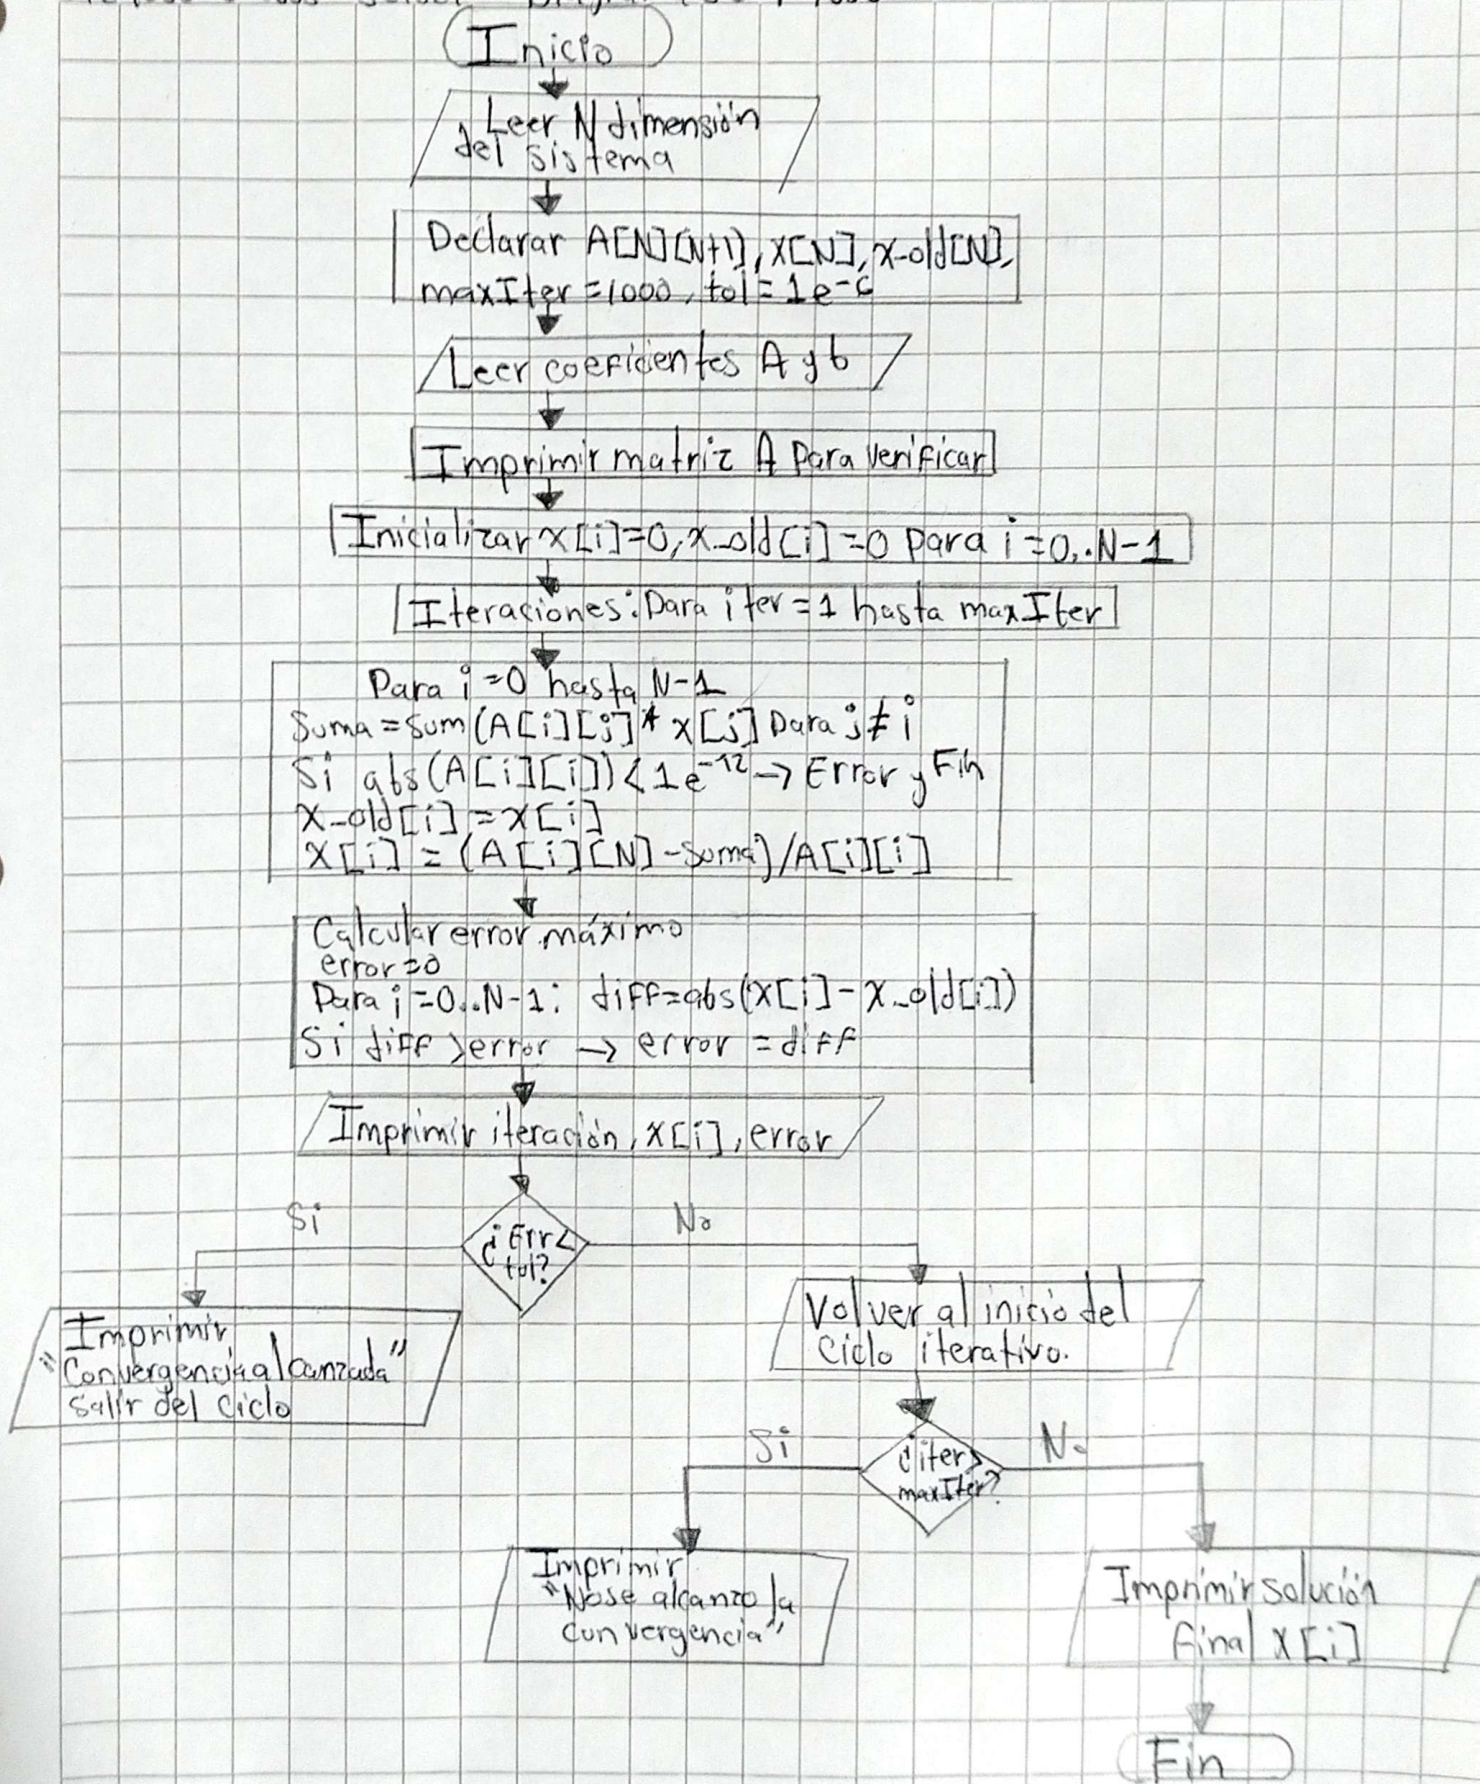 Inicio
Leer N dimensión
del sistema
Declarar A[N][N+1], X[N], x-old[N],
maxIter = 1000, tol = 1e-6
Leer coeficientes A y b
Imprimir matriz A para verificar
Inicializar x[i]=0, x-old[i]=0 para i=0,.N-1
Iteraciones: Para iter=1 hasta maxIter
Para i=0 hasta N-1
Suma = sum(A[i][j]* x[j] Para j≠i
Si abs(A[i][i]) < 1e-12 → Error y Fin
X-old[i] = x[i]
X[i] = (A[i][N] - suma)/A[i][i]
Calcular error máximo
error=0
Para i=0..N-1: diff=abs(x[i]-x-old[i])
Si diff > error → error = diff
Imprimir iteración, x[i], error
Si
No
¿Err<
tol?
Imprimir
"Convergencia alcanzada"
Salir del ciclo
Volver al inicio del
Ciclo iterativo.
Si
No
¿iter>
maxIter?
Imprimir
"No se alcanzo la
convergencia"
Imprimir solución
final X[i]
Fin